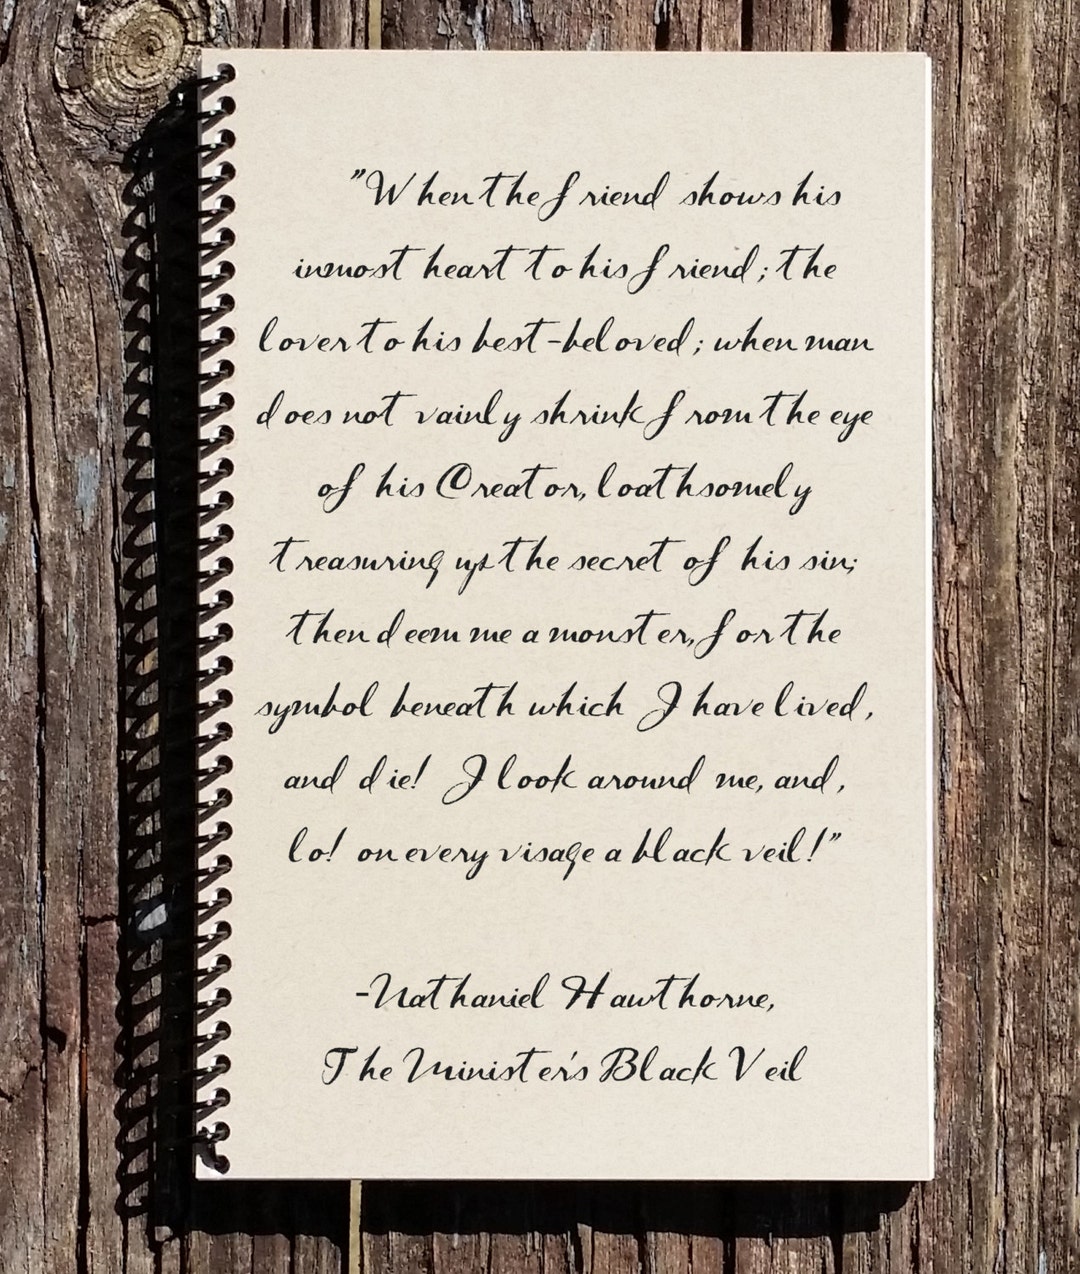 "When the friend shows his
inmost heart to his friend; the
lover to his best-beloved; when man
does not vainly shrink from the eye
of his Creator, loathsomely
treasuring up the secret of his sin;
then deem me a monster, for the
symbol beneath which I have lived,
and die! I look around me, and,
lo! on every visage a black veil!"
-Nathaniel Hawthorne,
The Minister's Black Veil